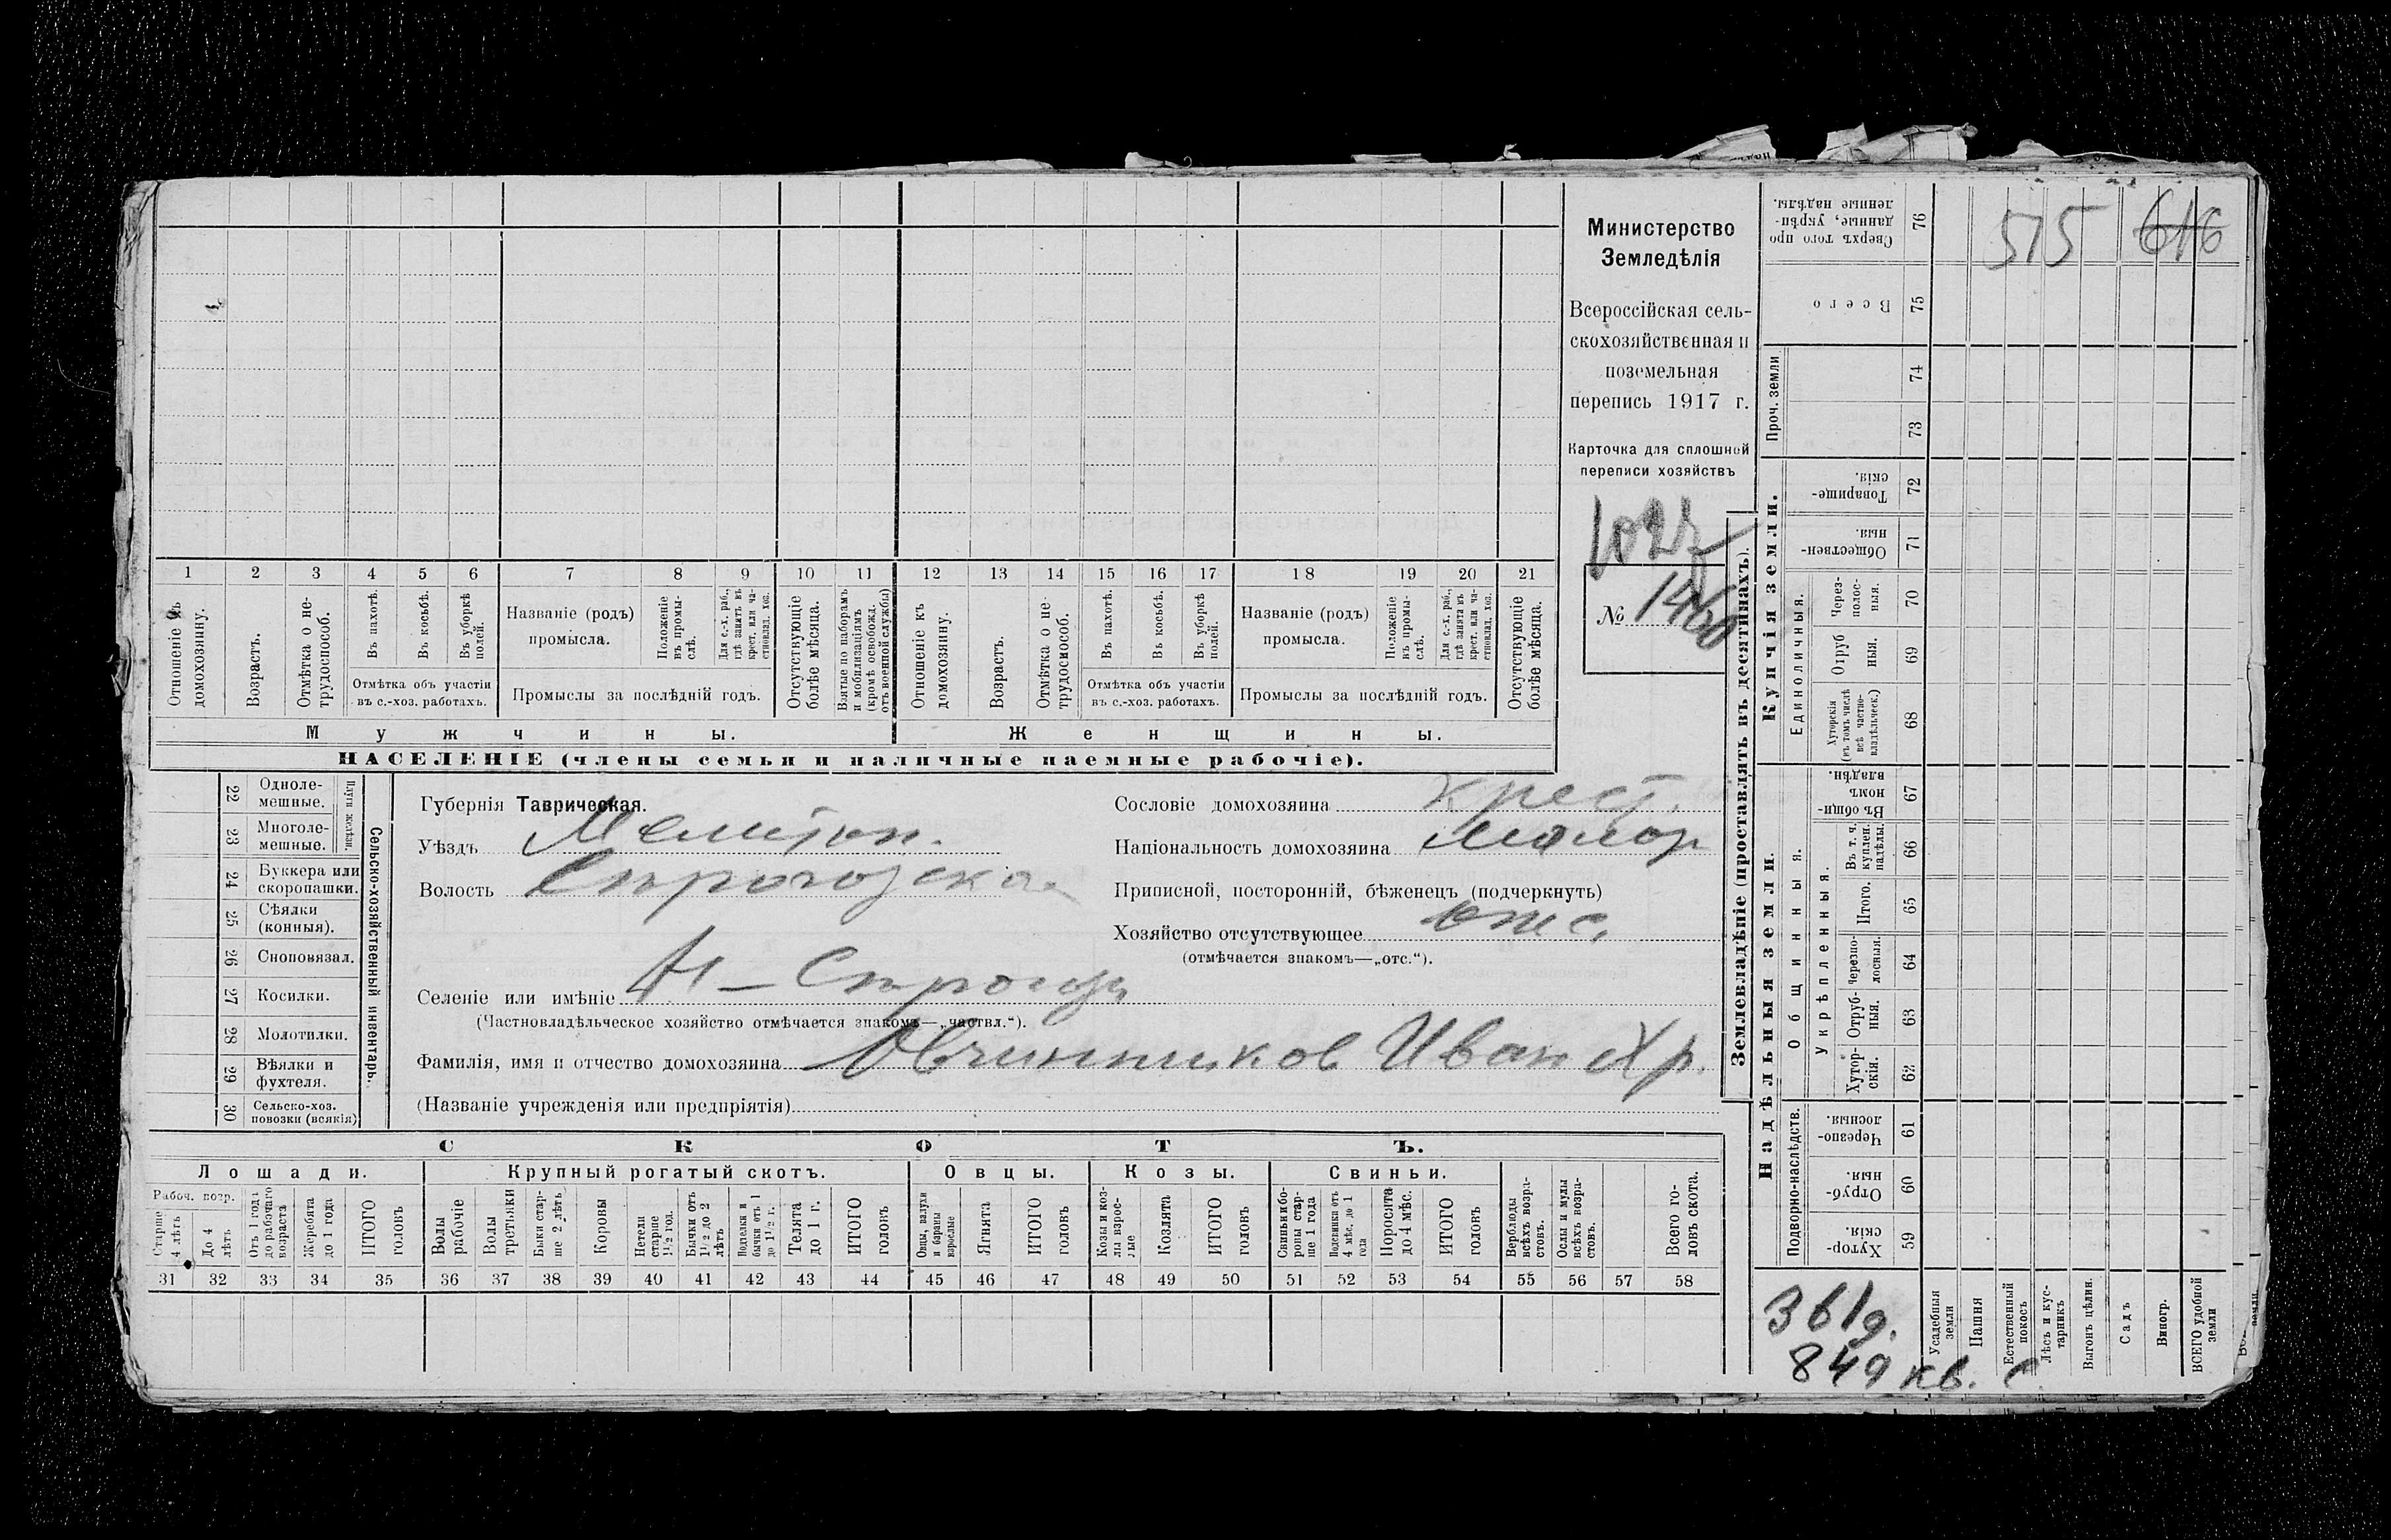 Министерство
Земледѣлія
Всероссійская сель-
скохозяйственная и
поземельная
перепись 1917 г.
Карточка для сплошной
переписи хозяйствъ
№
1 2 3 4 5 6 7 8 9 10 11 12 13 14 15 16 17 18 19 20 21
Отношеніе къ домохозяину.
Возрастъ.
Отмѣтка о не-трудоспособ.
Въ пахотѣ.
Въ косьбѣ.
Въ уборкѣ полей.
Отмѣтка объ участіи
въ с.-хоз. работахъ.
Названіе (родъ)
промысла.
Положеніе въ промы-слѣ.
Для с.-х. раб., гдѣ занятъ въ крест. или ча-стновлад. хоз.
Промыслы за послѣдній годъ.
Отсутствующіе болѣе мѣсяца.
Взятые по наборамъ и мобилизаціямъ (кромѣ освобожд. отъ военной службы)
Отношеніе къ домохозяину.
Возрастъ.
Отмѣтка о не-трудоспособ.
Въ пахотѣ.
Въ косьбѣ.
Въ уборкѣ полей.
Отмѣтка объ участіи
въ с.-хоз. работахъ.
Названіе (родъ)
промысла.
Положеніе въ промы-слѣ.
Для с.-х. раб., гдѣ занята въ крест. или ча-стновлад. хоз.
Промыслы за послѣдній годъ.
Отсутствующіе болѣе мѣсяца.
Мужчины. Женщины.
НАСЕЛЕНІЕ (члены семьи и наличные наемные рабочіе).
Сельско-хозяйственный инвентарь.
Плуги желѣзн.
22 Одноле-мешные.
23 Многоле-мешные.
24 Буккера или скоропашки.
25 Сѣялки (конныя).
26 Сноповязал.
27 Косилки.
28 Молотилки.
29 Вѣялки и фухтеля.
30 Сельско-хоз. повозки (всякія)
Губернія Таврическая.
Уѣздъ Мелитоп.
Волость
Селеніе или имѣніе
(Частновладѣльческое хозяйство отмѣчается знакомъ—„частвл.“).
Фамилія, имя и отчество домохозяина Овчинников Иван Хр.
(Названіе учрежденія или предпріятія)
Сословіе домохозяина крест.
Національность домохозяина малор
Приписной, посторонній, бѣженецъ (подчеркнуть)
Хозяйство отсутствующее отс.
(отмѣчается знакомъ—„отс.“).
СКОТЪ.
Лошади. Крупный рогатый скотъ. Овцы. Козы. Свиньи.
Рабоч. возр.
Старше 4 лѣтъ
До 4 лѣтъ
Отъ 1 года до рабочаго возраста
Жеребята до 1 года
ИТОГО головъ
Волы рабочіе
Волы третьяки
Быки стар-ше 2 лѣтъ
Коровы
Нетели старше 1½ год.
Бычки отъ 1½ до 2 лѣтъ
Подтелки и бычки отъ 1 до 1½ г.
Телята до 1 г.
ИТОГО головъ
Овцы, валухи и бараны взрослые
Ягнята
ИТОГО головъ
Козы и коз-лы взрос-лые
Козлята
ИТОГО головъ
Свиньи и бо-ровы стар-ше 1 года
Подсвинки отъ 4 мѣс. до 1 года
Поросята до 4 мѣс.
ИТОГО головъ
Верблюды всѣхъ возра-стовъ.
Ослы и мулы всѣхъ возра-стовъ.
Всего го-ловъ скота.
31 32 33 34 35 36 37 38 39 40 41 42 43 44 45 46 47 48 49 50 51 52 53 54 55 56 57 58
Землевладѣніе (проставлять въ десятинахъ).
Купчія земли.
Надѣльныя земли.
515 616
Сверхъ того про данные, укрѣп-ленные надѣлы. 76
Всего 75
Проч. земли
74
73
Товарище-скія. 72
Обществен-ныя. 71
Единоличныя.
Через-полос-ныя. 70
Отруб ныя. 69
Хуторскія (въ томъ числѣ всѣ частно-владѣльческ.) 68
Общинныя.
Въ общи-номъ владѣн. 67
Укрѣпленныя.
Въ т. ч. куплен. надѣлы. 66
Итого. 65
Черезпо-лосныя. 64
Отруб-ныя. 63
Хутор-скія. 62
Подворно-наслѣдств.
Черезпо-лосныя. 61
Отруб-ныя. 60
Хутор-скія. 59
Усадебныя земли
Пашня
Естественный покосъ
Лѣсъ и кус-тарникъ
Выгонъ цѣлин.
Садъ
Виногр.
ВСЕГО удобной земли
849 кв. с.